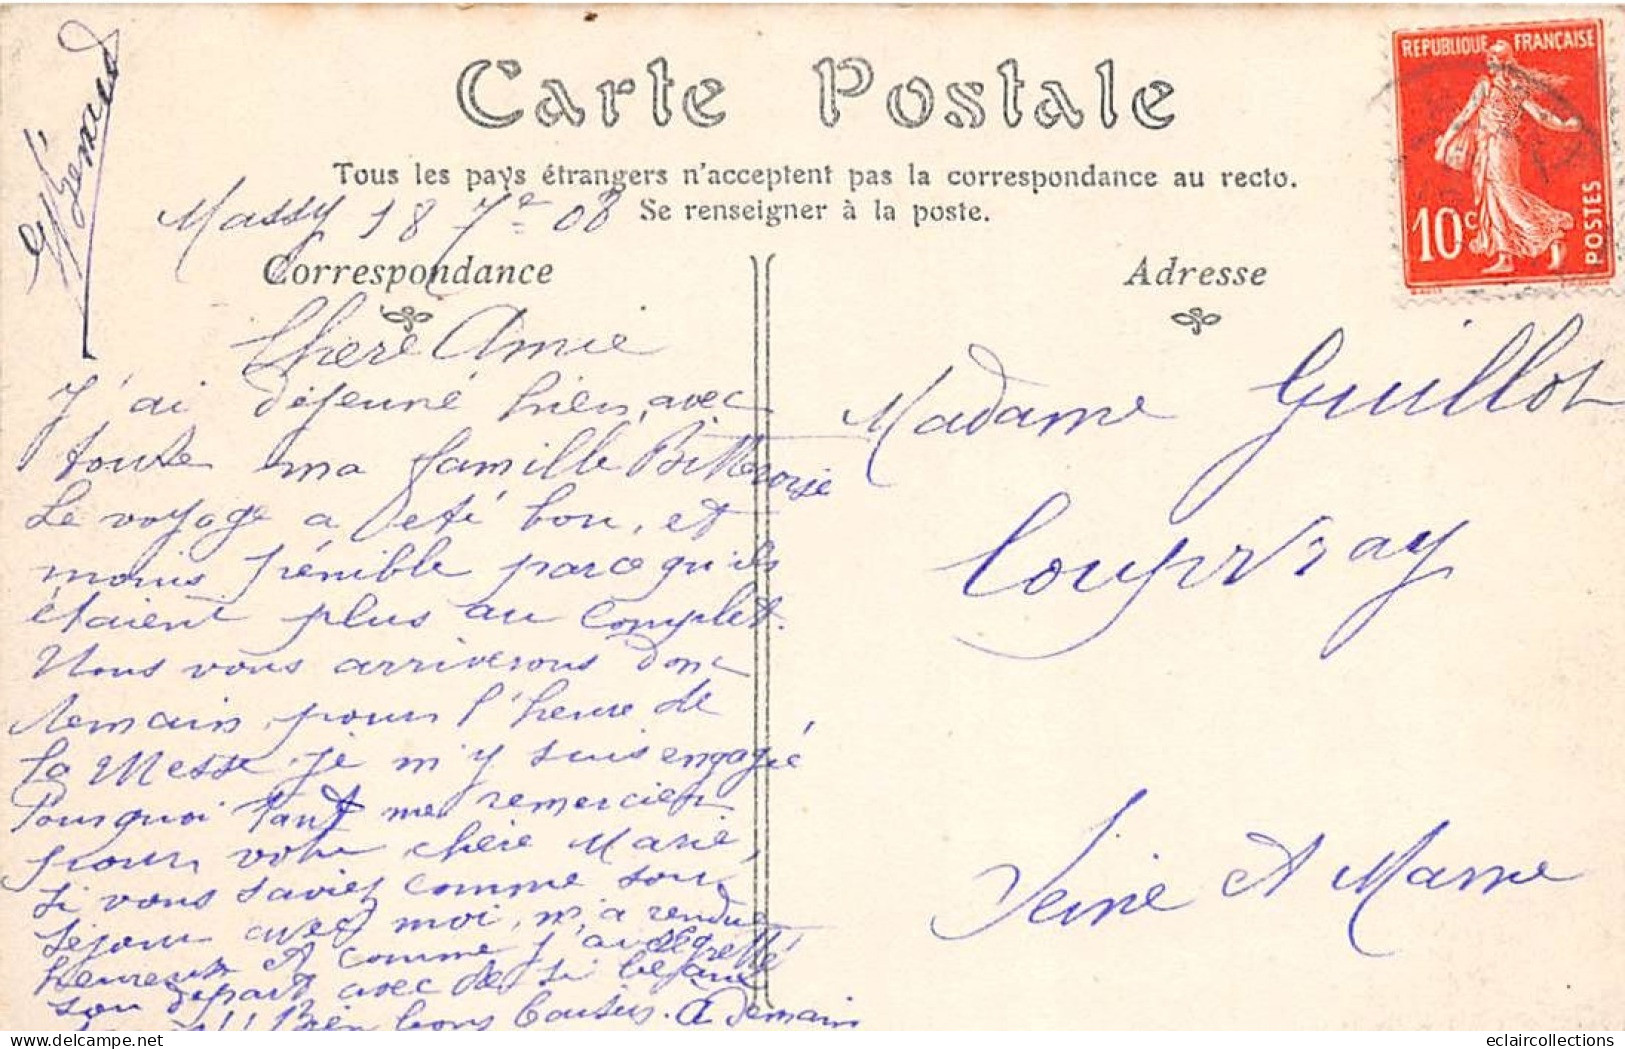 Carte Postale
Tous les pays étrangers n'acceptent pas la correspondance au recto.
Se renseigner à la poste.
REPUBLIQUE FRANÇAISE
10c
POSTES
Massy 18 7e 08
Correspondance
Chère Amie
J'ai déjeuné hier, avec
toute ma famille
Le voyage a été bon, et
moins pénible parce qu'ils
étaient plus au complet.
Nous vous arriverons donc
demain pour l'heure de
la Messe je m'y suis engagé
Pourquoi tant me remercier
pour votre chère Marie,
si vous saviez comme son
séjour avec moi, m'a rendue
heureuse et comme j'ai regretté
son départ avec de si
Bien bons baisers. A demain
Adresse
Madame Guillot
Coupvray
Seine et Marne
eclaircollections